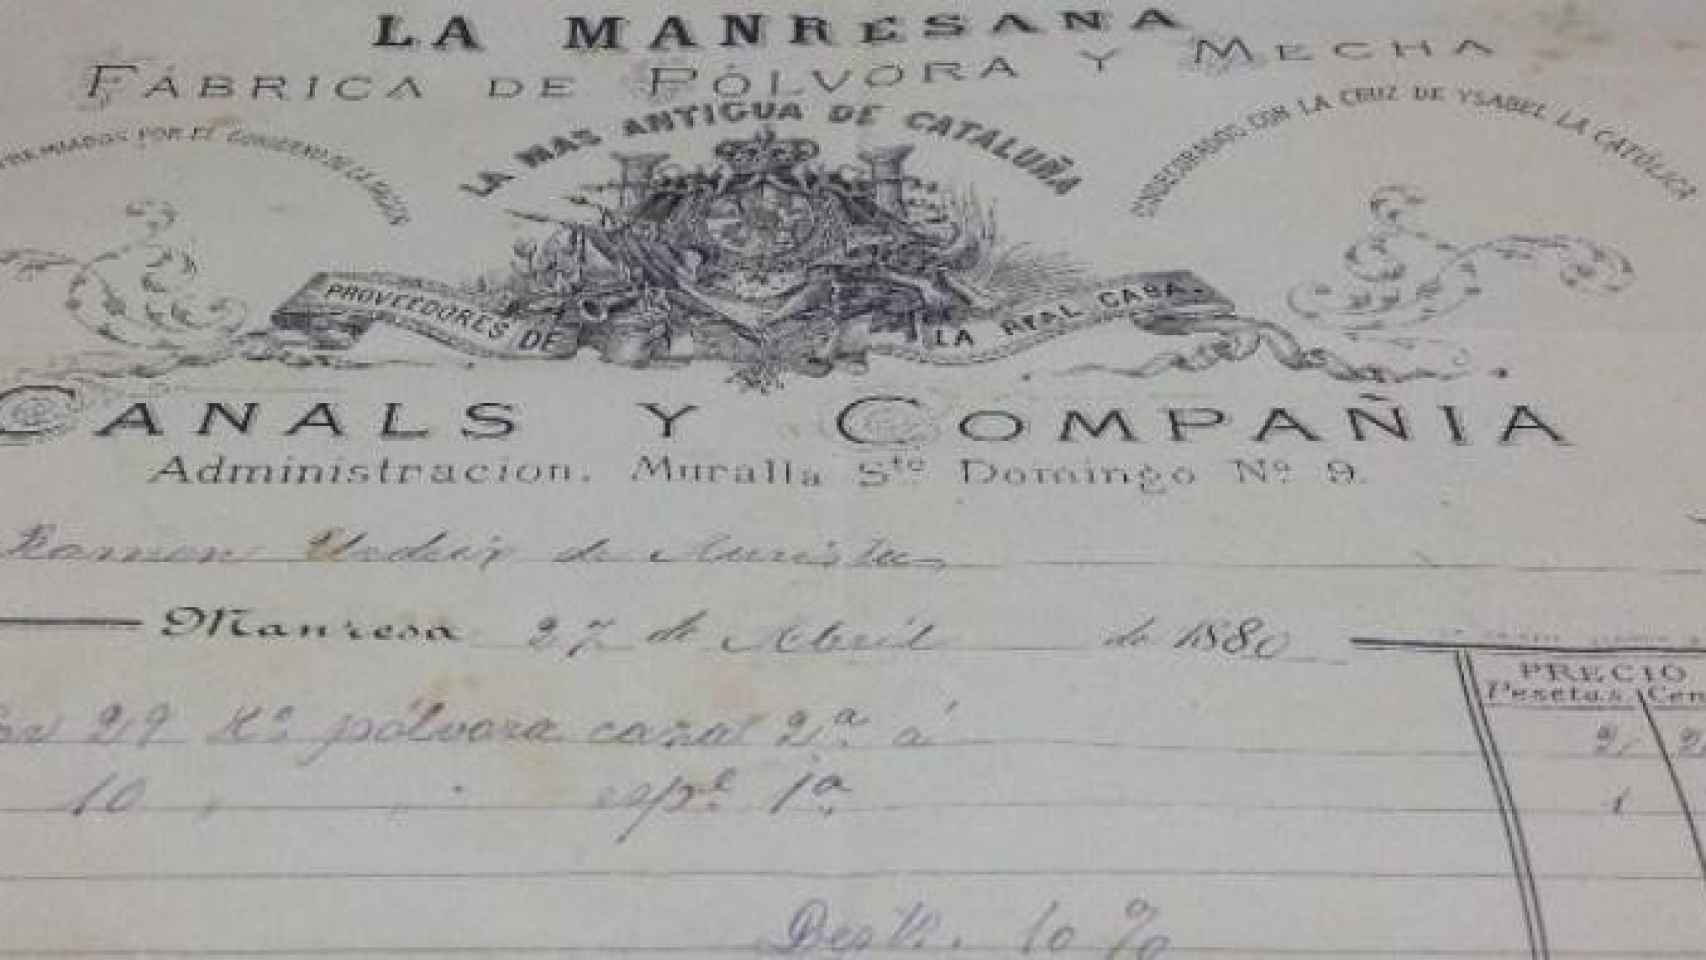 LA MANRESANA
FÁBRICA DE PÓLVORA Y MECHA
PREMIADOS POR EL GOBIERNO DE LA NACION
LA MAS ANTIGUA DE CATALUÑA
CONDECORADOS CON LA CRUZ DE YSABEL LA CATÓLICA
PROVEEDORES DE LA REAL CASA.
CANALS Y COMPAÑIA
Administracion. Muralla Sto Domingo No. 9.
Ramon de
Manresa 27 de Abril de 1880
PRECIO
Pesetas Cen
29 Ko. pólvora caza 2.a á 2,
10 " " esp.l 1.a 1
10 %